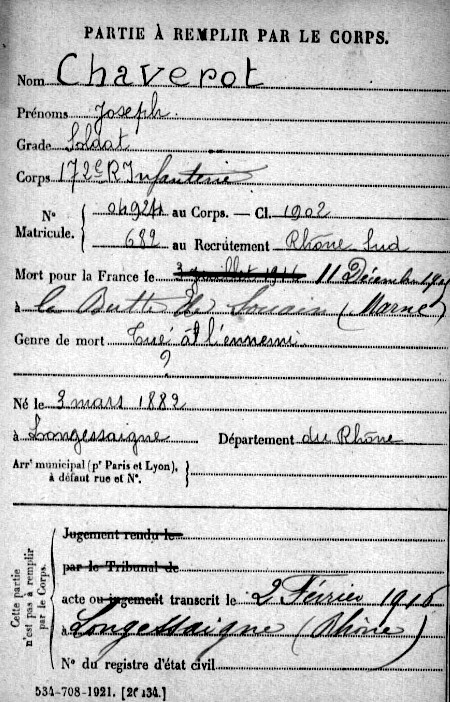 PARTIE À REMPLIR PAR LE CORPS.
Nom Chaverot
Prénoms Joseph.
Grade Soldat
Corps 172e R Infanterie
N° Matricule. { 04924 au Corps. — Cl. 1902
689 au Recrutement Rhône Sud
Mort pour la France le 3 juillet 1914 11 Décembre 1915
à la Butte de Souain (Marne)
Genre de mort Tué à l'ennemi
?
Né le 3 mars 1882
à Longessaigne Département du Rhône
Arrt municipal (pr Paris et Lyon), }
à défaut rue et N°.
Cette partie n'est pas à remplir par le Corps.
Jugement rendu le
par le Tribunal de
acte ou jugement transcrit le 2 Février 1916
à Longessaigne (Rhône)
N° du registre d'état civil
534-708-1921. [26434.]